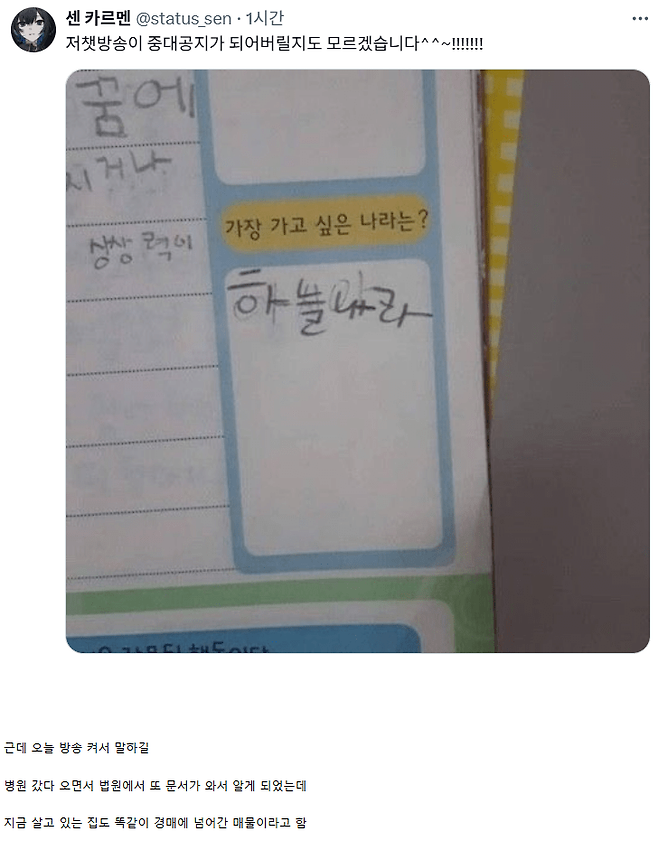 센 카르멘 @status_sen · 1시간
저챗방송이 중대공지가 되어버릴지도 모르겠습니다^^~!!!!!!!
꿈에
시거나
상상력이
가장 가고 싶은 나라는?
하늘나라
근데 오늘 방송 켜서 말하길
병원 갔다 오면서 법원에서 또 문서가 와서 알게 되었는데
지금 살고 있는 집도 똑같이 경매에 넘어간 매물이라고 함